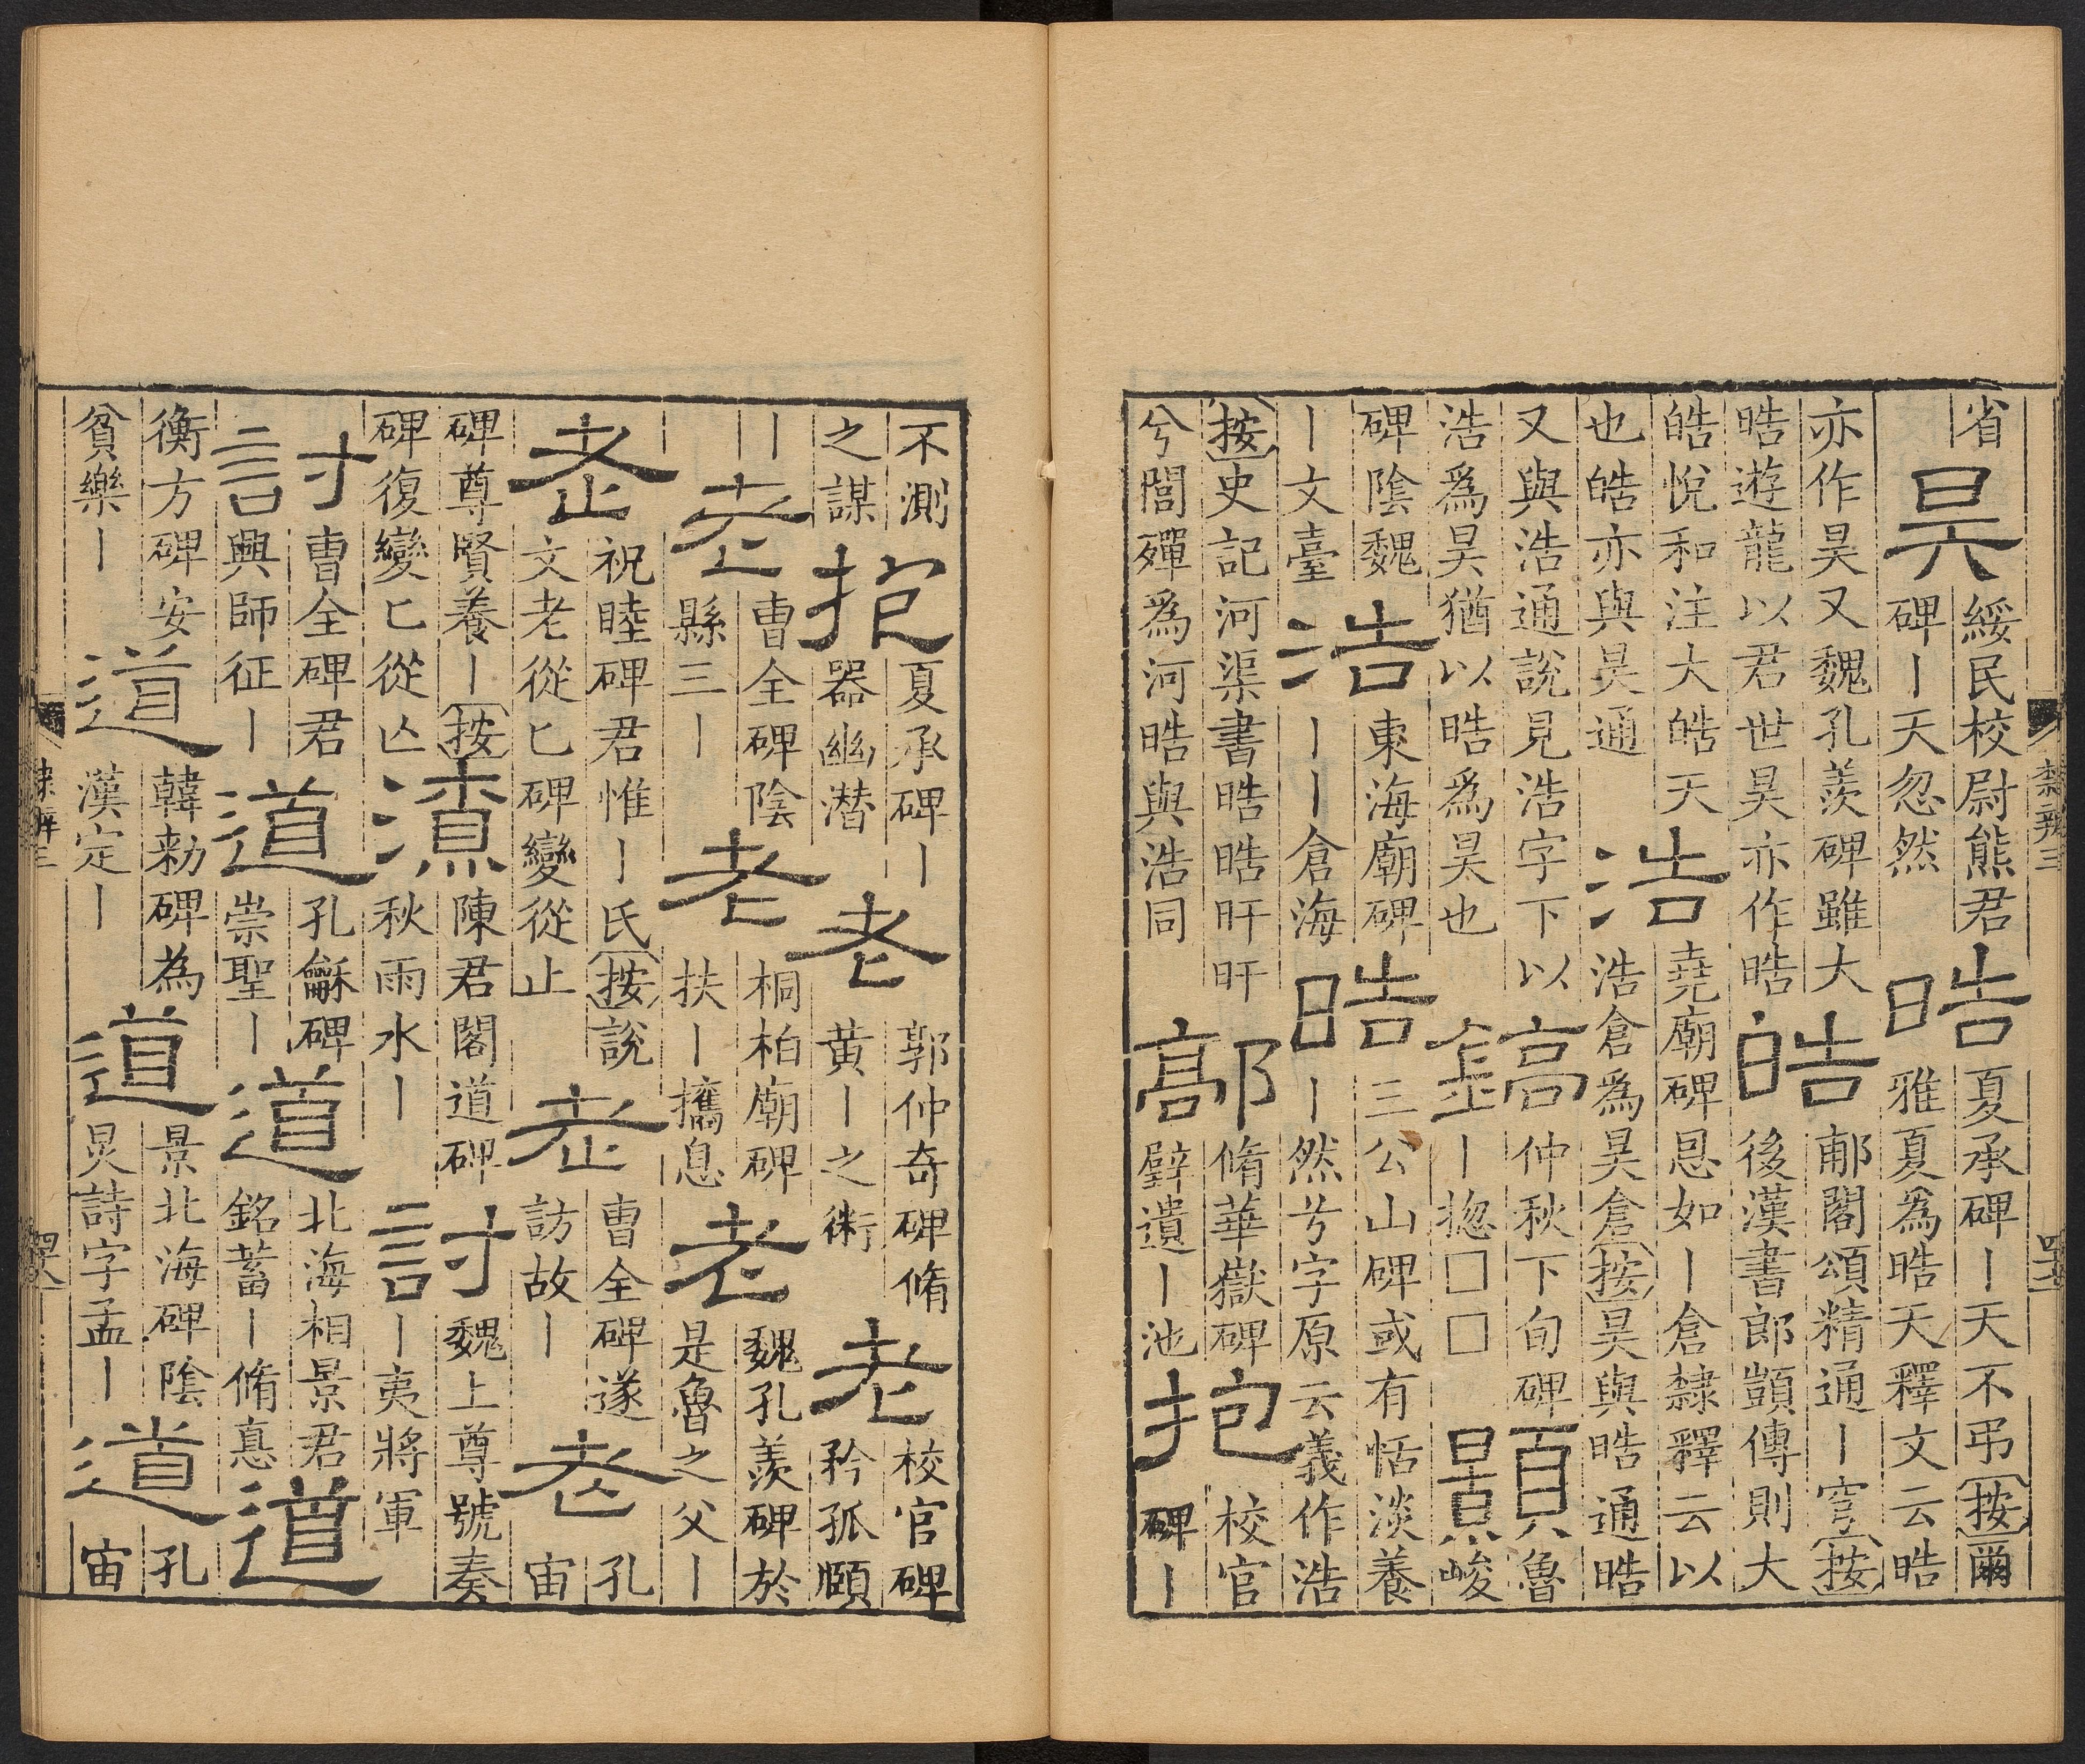 隸辨三
省
昊
綏民校尉熊君
碑丨天忽然
晧
夏承碑丨天不弔按爾
雅夏爲晧天釋文云晧
亦作昊又魏孔羨碑雖大
晧遊龍以君世昊亦作晧
皓
郙閣頌精通丨穹按
後漢書郎顗傳則大
皓悅和注大皓天
也皓亦與昊通
浩
堯廟碑恩如丨倉隸釋云以
浩倉爲昊倉按昊與晧通晧
又與浩通說見浩字下以
浩爲昊猶以晧爲昊也
鎬
仲秋下旬碑
丨揔□□
顥
魯
峻
碑陰魏
丨文臺
浩
東海廟碑
丨丨倉海
晧
三公山碑或有恬淡養
丨然兮字原云義作浩
按史記河渠書晧晧旰旰
兮閭殫爲河晧與浩同
鄗
脩華嶽碑
璧遺丨池
抱
校官
碑丨
不測
之謀
抱
夏承碑丨
器幽潛
老
郭仲奇碑脩
黃丨之術
老
校官碑
矜孤頤
丨
老
曹全碑陰
縣三丨
老
桐柏廟碑
扶丨攜息
老
魏孔羨碑於
是魯之父丨
老
祝睦碑君惟丨氏按說
文老從匕碑變從止
老
曹全碑遂
訪故丨
老
孔
宙
碑尊賢養丨按
碑復變匕從亾
潦
陳君閣道碑
秋雨水丨
討
魏上尊號奏
丨夷將軍
討
曹全碑君
興師征丨
道
孔龢碑
崇聖丨
道
北海相景君
銘蓄丨脩悳
道
衡方碑安
貧樂丨
道
韓勑碑為
漢定丨
道
景北海碑陰
晃詩字孟丨
道
孔
宙
隸辨三
四八